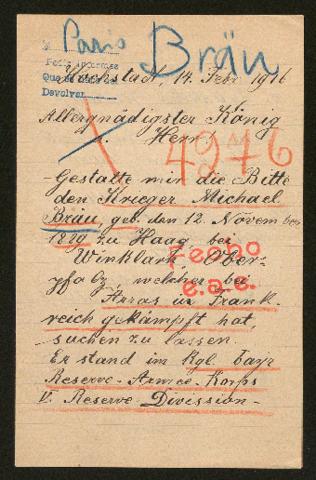 Paris
Bräu
Höchstadt, 14. Febr. 1916
Devolver
Allergnädigster König
u. Herr!
4976
Gestatte mir die Bitte
den Krieger Michael
Bräu, geb. den 12. Novem ber
zu Haag bei
Winklarn Ober-
pfalz, welcher bei
Arras in Frank-
reich gekämpft hat,
suchen zu lassen.
Er stand im Kgl. Bayr
Reserve-Armee-Korps
V. Reserve Division-